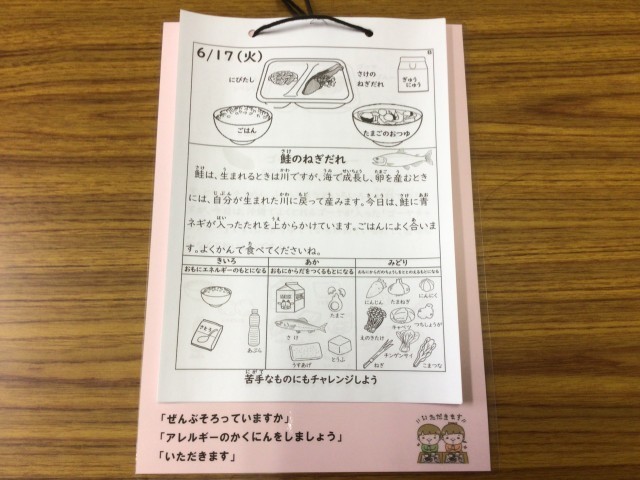 6/17(火)
にびたし
さけの
ねぎだれ
ぎゅう
にゅう
ごはん
たまごのおつゆ
鮭のねぎだれ
鮭は、生まれるときは川ですが、海で成長し、卵を産むとき
には、自分が生まれた川に戻って産みます。今日は、鮭に青
ネギが入ったたれを上からかけています。ごはんによく合いま
す。よくかんで食べてくださいね。
きいろ
あか
みどり
おもにエネルギーのもとになる
おもにからだをつくるもとになる
おもにからだのちょうしをととのえるもとになる
さとう
あぶら
たまご
さけ
うすあげ
とうふ
にんじん
たまねぎ
にんにく
えのきたけ
キャベツ
つちしょうが
ねぎ
チンゲンサイ
こまつな
苦手なものにもチャレンジしよう
「ぜんぶそろっていますか」
「アレルギーのかくにんをしましょう」
「いただきます」
いただきます